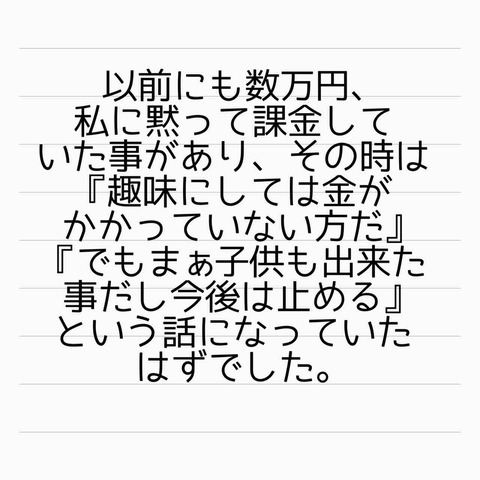 以前にも数万円、
私に黙って課金して
いた事があり、その時は
『趣味にしては金が
かかっていない方だ』
『でもまぁ子供も出来た
事だし今後は止める』
という話になっていた
はずでした。